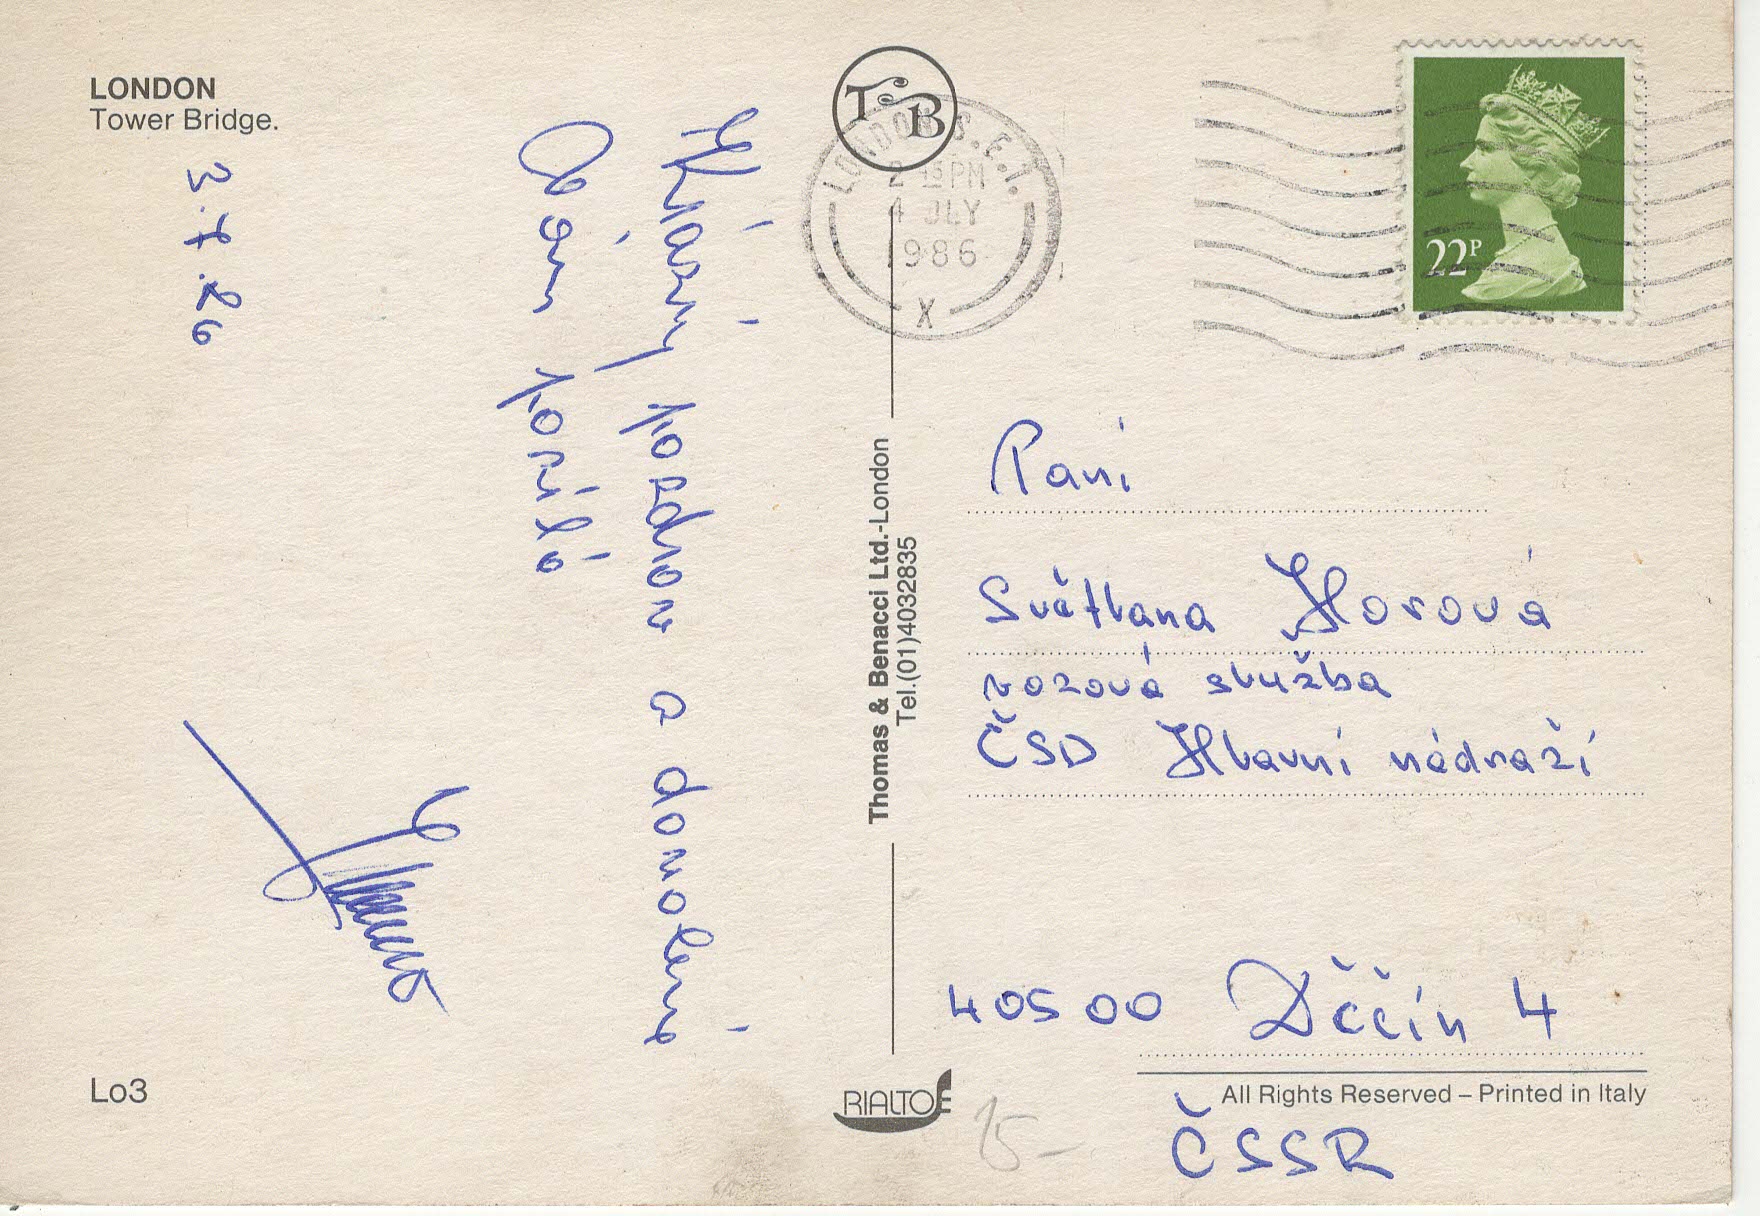 LONDON
Tower Bridge.
3.7.86
Krásný pozdrav a dovolené
Vám posílá
TB
LONDON S.E.1.
2 15 PM
4 JLY
1986
X
22P
Thomas & Benacci Ltd.-London
Tel.(01)4032835
Paní
Světlana Horová
vozová služba
ČSD Hlavní nádraží
40500 Děčín 4
ČSSR
Lo3
RIALTO
All Rights Reserved – Printed in Italy
15-